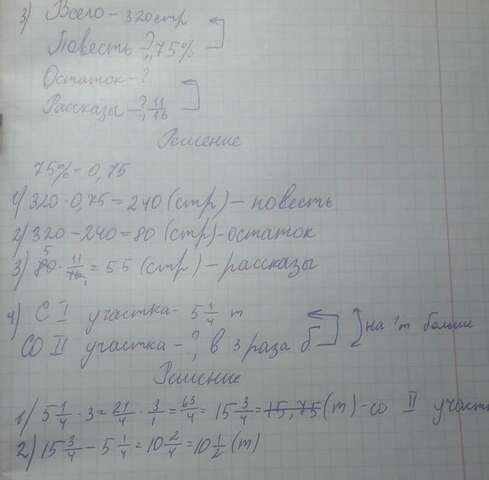 3) Всего - 320 стр
Повесть - ?, 75%
Остаток - ?
Рассказы - ?, 11/16
Решение
75% = 0,75
1) 320 · 0,75 = 240 (стр) - повесть
2) 320 - 240 = 80 (стр) - остаток
3) 80 · 11/16 = 55 (стр) - рассказы
5
1
4) С I участка - 5 1/4 т
СО II участка - ?, в 3 раза б на ?т больше
Решение
1) 5 1/4 · 3 = 21/4 · 3/1 = 63/4 = 15 3/4 = 15,75 (т) - со II участ
2) 15 3/4 - 5 1/4 = 10 2/4 = 10 1/2 (т)